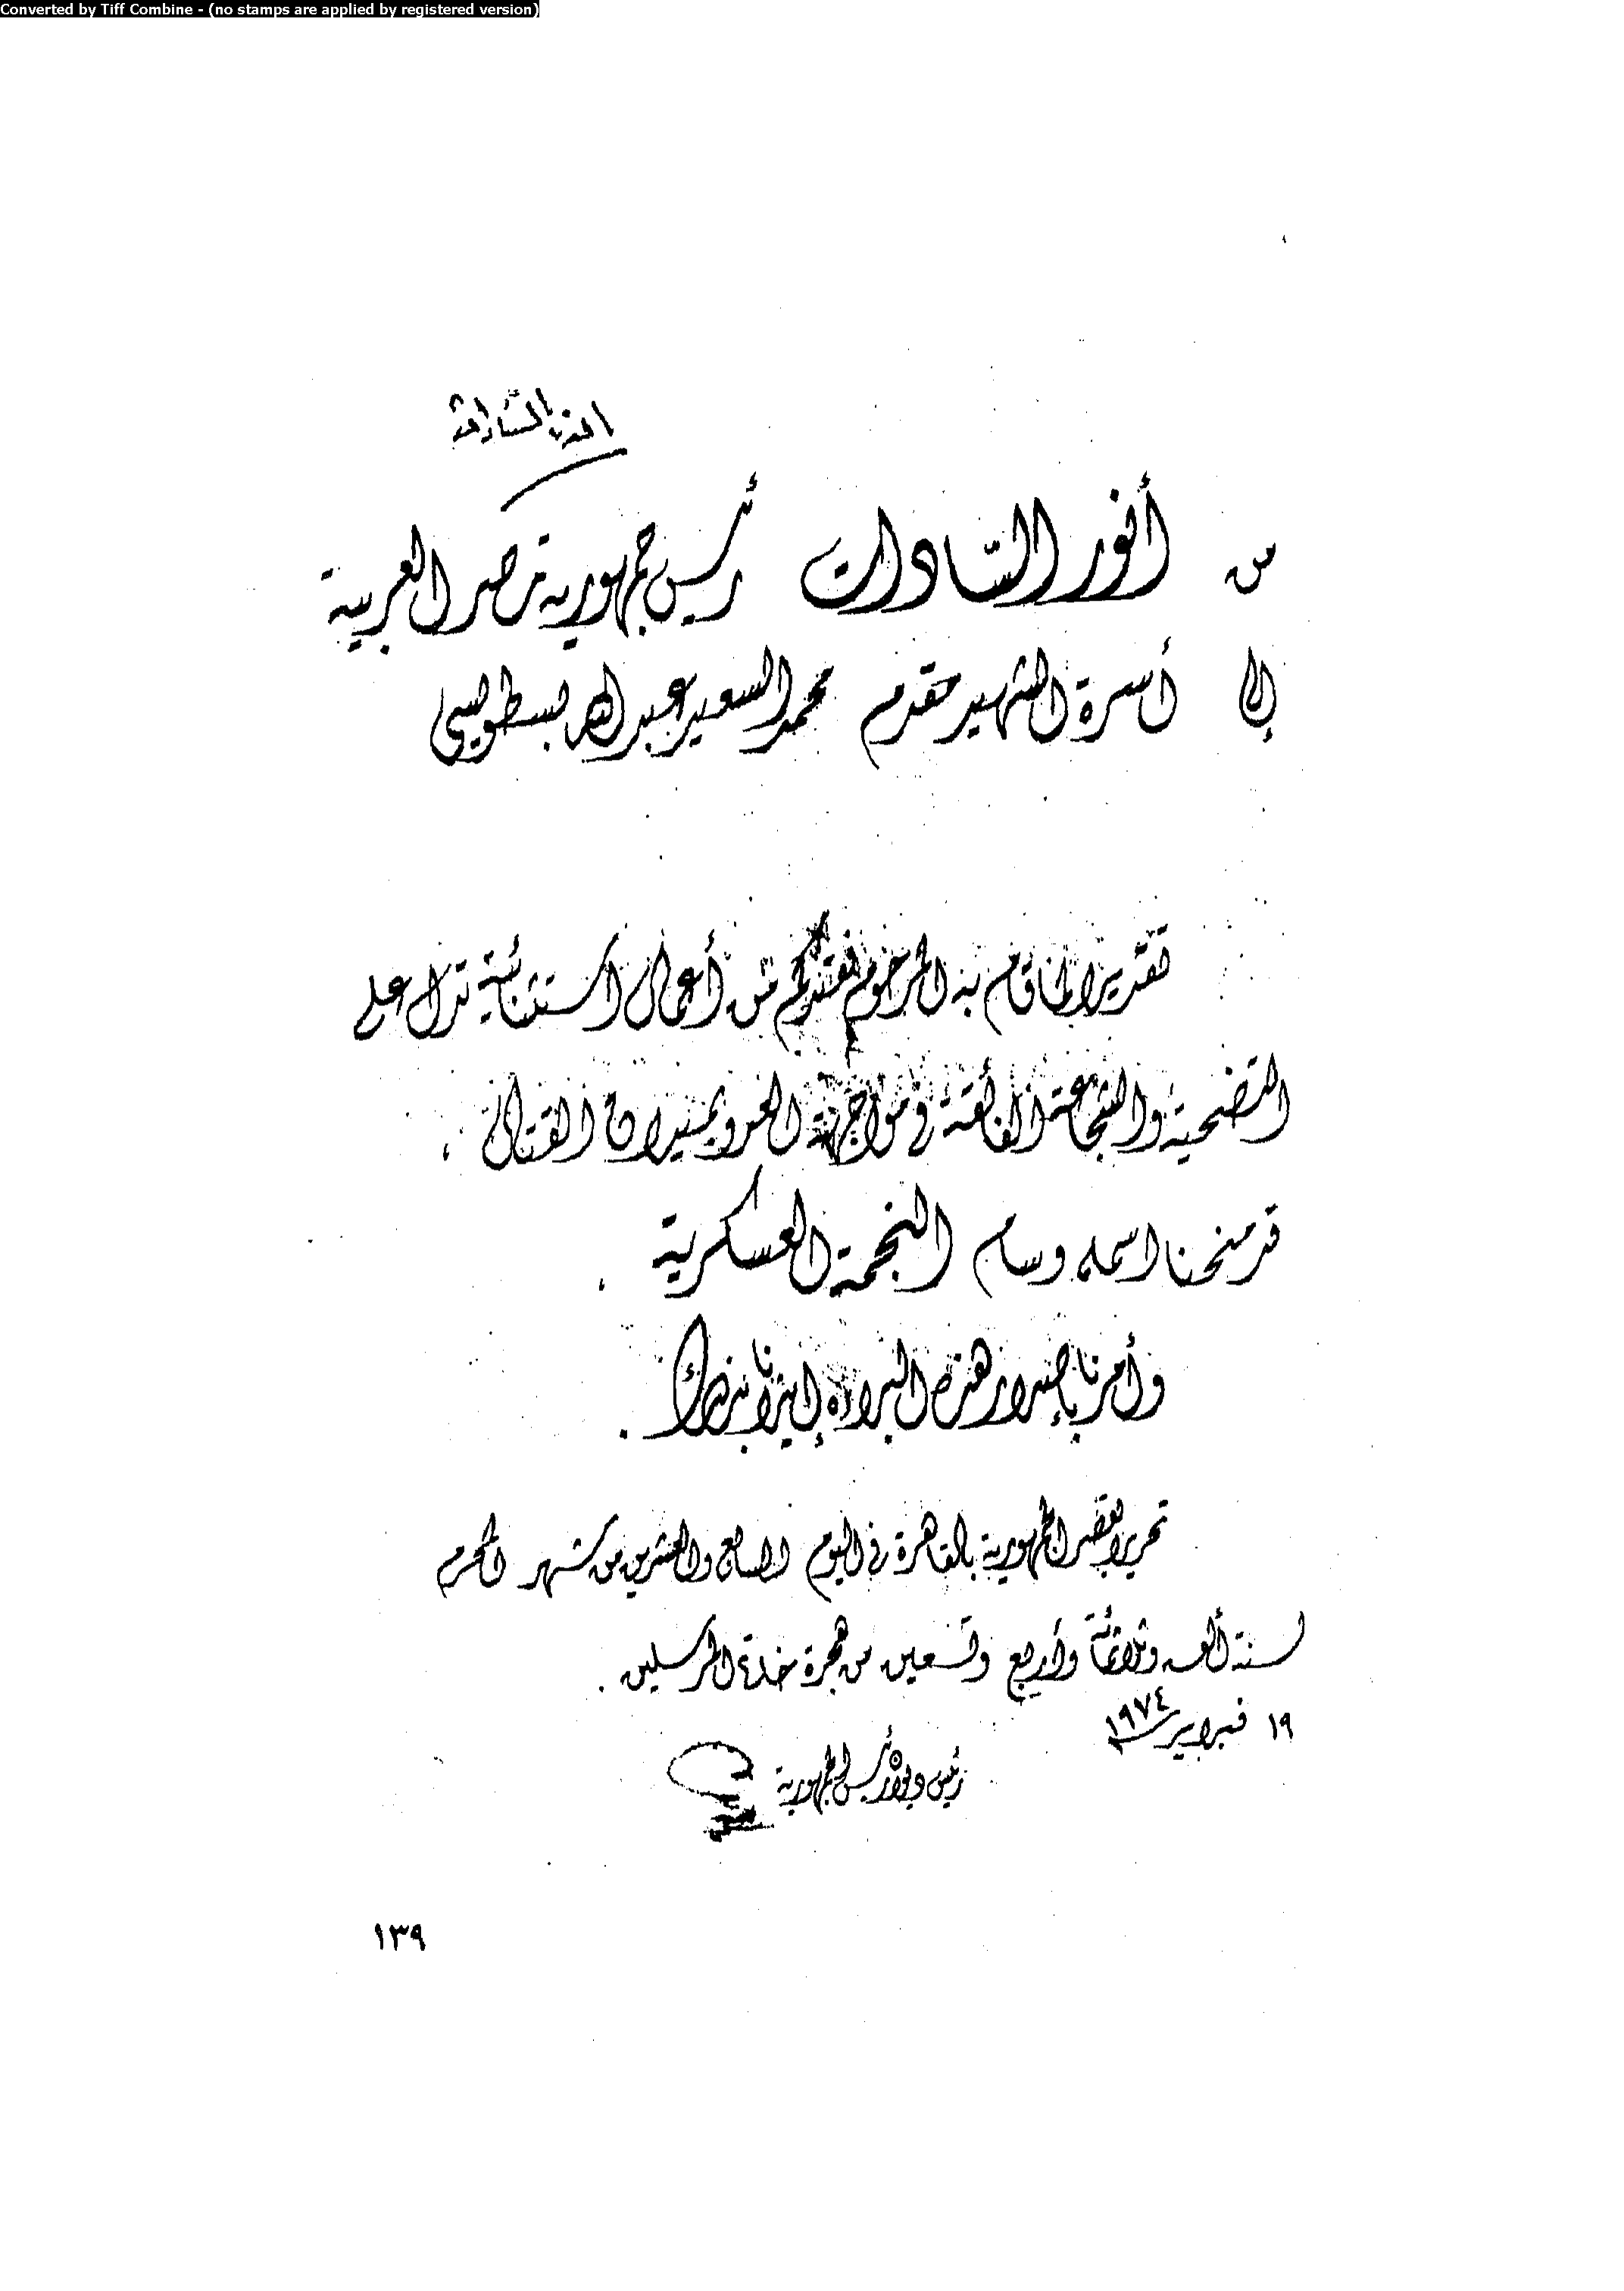 Converted by Tiff Combine - (no stamps are applied by registered version)
أنور السادات
من أنور السّادات رئيس جمهورية مصر العربية
إلى أسرة الشهيد مقدم محمد السعيد عبد الله بسطويسى
تقديرا لما قام به المرحوم فقيدكم من أعمال استثنائية تدل على
التضحية والشجاعة الفائقة فى مواجهة العدو بميدان القتال ،
قد منحنا اسمه وسام النجمة العسكرية ،
وأمرنا بإصدار هذه البراءة إيذانا بذلك .
تحريرا بقصر الجمهورية بالقاهرة فى اليوم السابع والعشرين من شهر المحرم
لسنة ألف وثلاثمائة وأربع وتسعين من هجرة خاتم المرسلين .
١٩ فبراير ١٩٧٤
رئيس ديوان رئيس الجمهورية
١٣٩